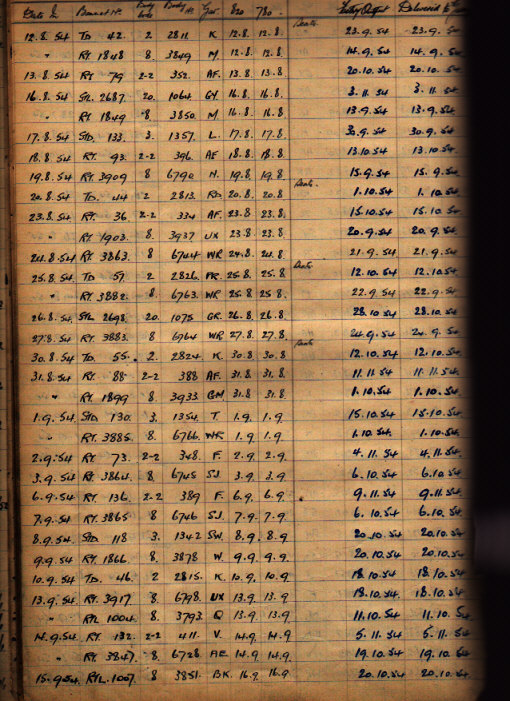 Date In Bonnet No Body Code Body No Gar. 820 780 Delivered
12.8.54 TD 42. 2 2811 K 12.8. 12.8. Seats. 23.9.54 23.9.
" RT 1848 8 3849 M. 12.8. 12.8. 14.9.54 14.9.
13.8.54 RT. 79 2-2 352. AF. 13.8 13.8. 20.10.54 20.10.
16.8.54 STL 2687 20. 1064 GY 16.8. 16.8. 3.11.54 3.11.54
" RT 1849 8. 3850. M 16.8. 16.8. 13.9.54 13.9.54
17.8.54 STD. 133. 3. 1357. L. 17.8. 17.8. 30.9.54 30.9.54
18.8.54 RT. 93. 2-2 396. AF 18.8 18.8. 13.10.54 13.10.54
19.8.54 RT 3909 8 6790 N. 19.8 19.8 15.9.54 15.9.54
20.8.54 TD. 44 2 2813. RD 20.8 20.8. Seats. 1.10.54 1.10.54
23.8.54 RT. 36. 2-2 334 AF. 23.8 23.8. 15.10.54 15.10.54
" RT. 1903. 8 3937 UX 23.8 23.8. 20.9.54 20.9.54
24.8.54 RT. 3863. 8 6744 WR 24.8. 24.8. 21.9.54 21.9.54
25.8.54 TD 57 2 2826. 25.8. 25.8 Seats 12.10.54 12.10.54
" RT. 3882. 8. 6763. WR 25.8 25.8. 22.9.54 22.9.54
26.8.54 STL 2698 20. 1075 GR. 26.8. 26.8. 28.10.54 28.10.54
27.8.54 RT. 3883. 8 6764 WR 27.8. 27.8. 24.9.54 24.9.54
30.8.54 TD 55. 2 2824 K 30.8 30.8 Seats 12.10.54 12.10.54
31.8.54 RT. 88 2-2 388 AF. 31.8. 31.8. 11.11.54 11.11.54
" RT 1899 8 3933 31.8 31.8 1.10.54 1.10.54
1.9.54 STD 130. 3 1354. T 1.9. 1.9. 15.10.54 15.10.54
" RT. 3885. 8. 6766 WR. 1.9 1.9 1.10.54 1.10.54
2.9.54 RT. 73. 2-2 348. F. 2.9 2.9. 4.11.54 4.11.54
3.9.54 RT. 3864. 8 6745 SJ. 3.9. 3.9. 6.10.54 6.10.54
6.9.54 RT. 136. 2-2 389 F. 6.9. 6.9. 9.11.54 9.11.54
7.9.54 RT. 3865 8 6746 SJ. 7.9. 7.9. 6.10.54 6.10.54
8.9.54 STD 118 3. 1342 SW. 8.9. 8.9 20.10.54 20.10.54
9.9.54 RT. 1866. 8 3878 W 9.9. 9.9. 20.10.54 20.10.54
10.9.54 TD. 46. 2 2815. K 10.9. 10.9. 18.10.54 18.10.54
13.9.54 RT. 3917 8. 6798. UX 13.9. 13.9 18.10.54 18.10.54
" RTL 1004. 8 3793. Q 13.9. 13.9 11.10.54 11.10.54
14.9.54 RT. 132. 2-2 411. V. 14.9. 14.9 5.11.54 5.11.54
" RT. 3847. 8 6728 AE. 14.9 14.9. 19.10.54 19.10.54
15.9.54 RTL. 1007. 8 3851. BK. 16.9. 16.9 20.10.54 20.10.54